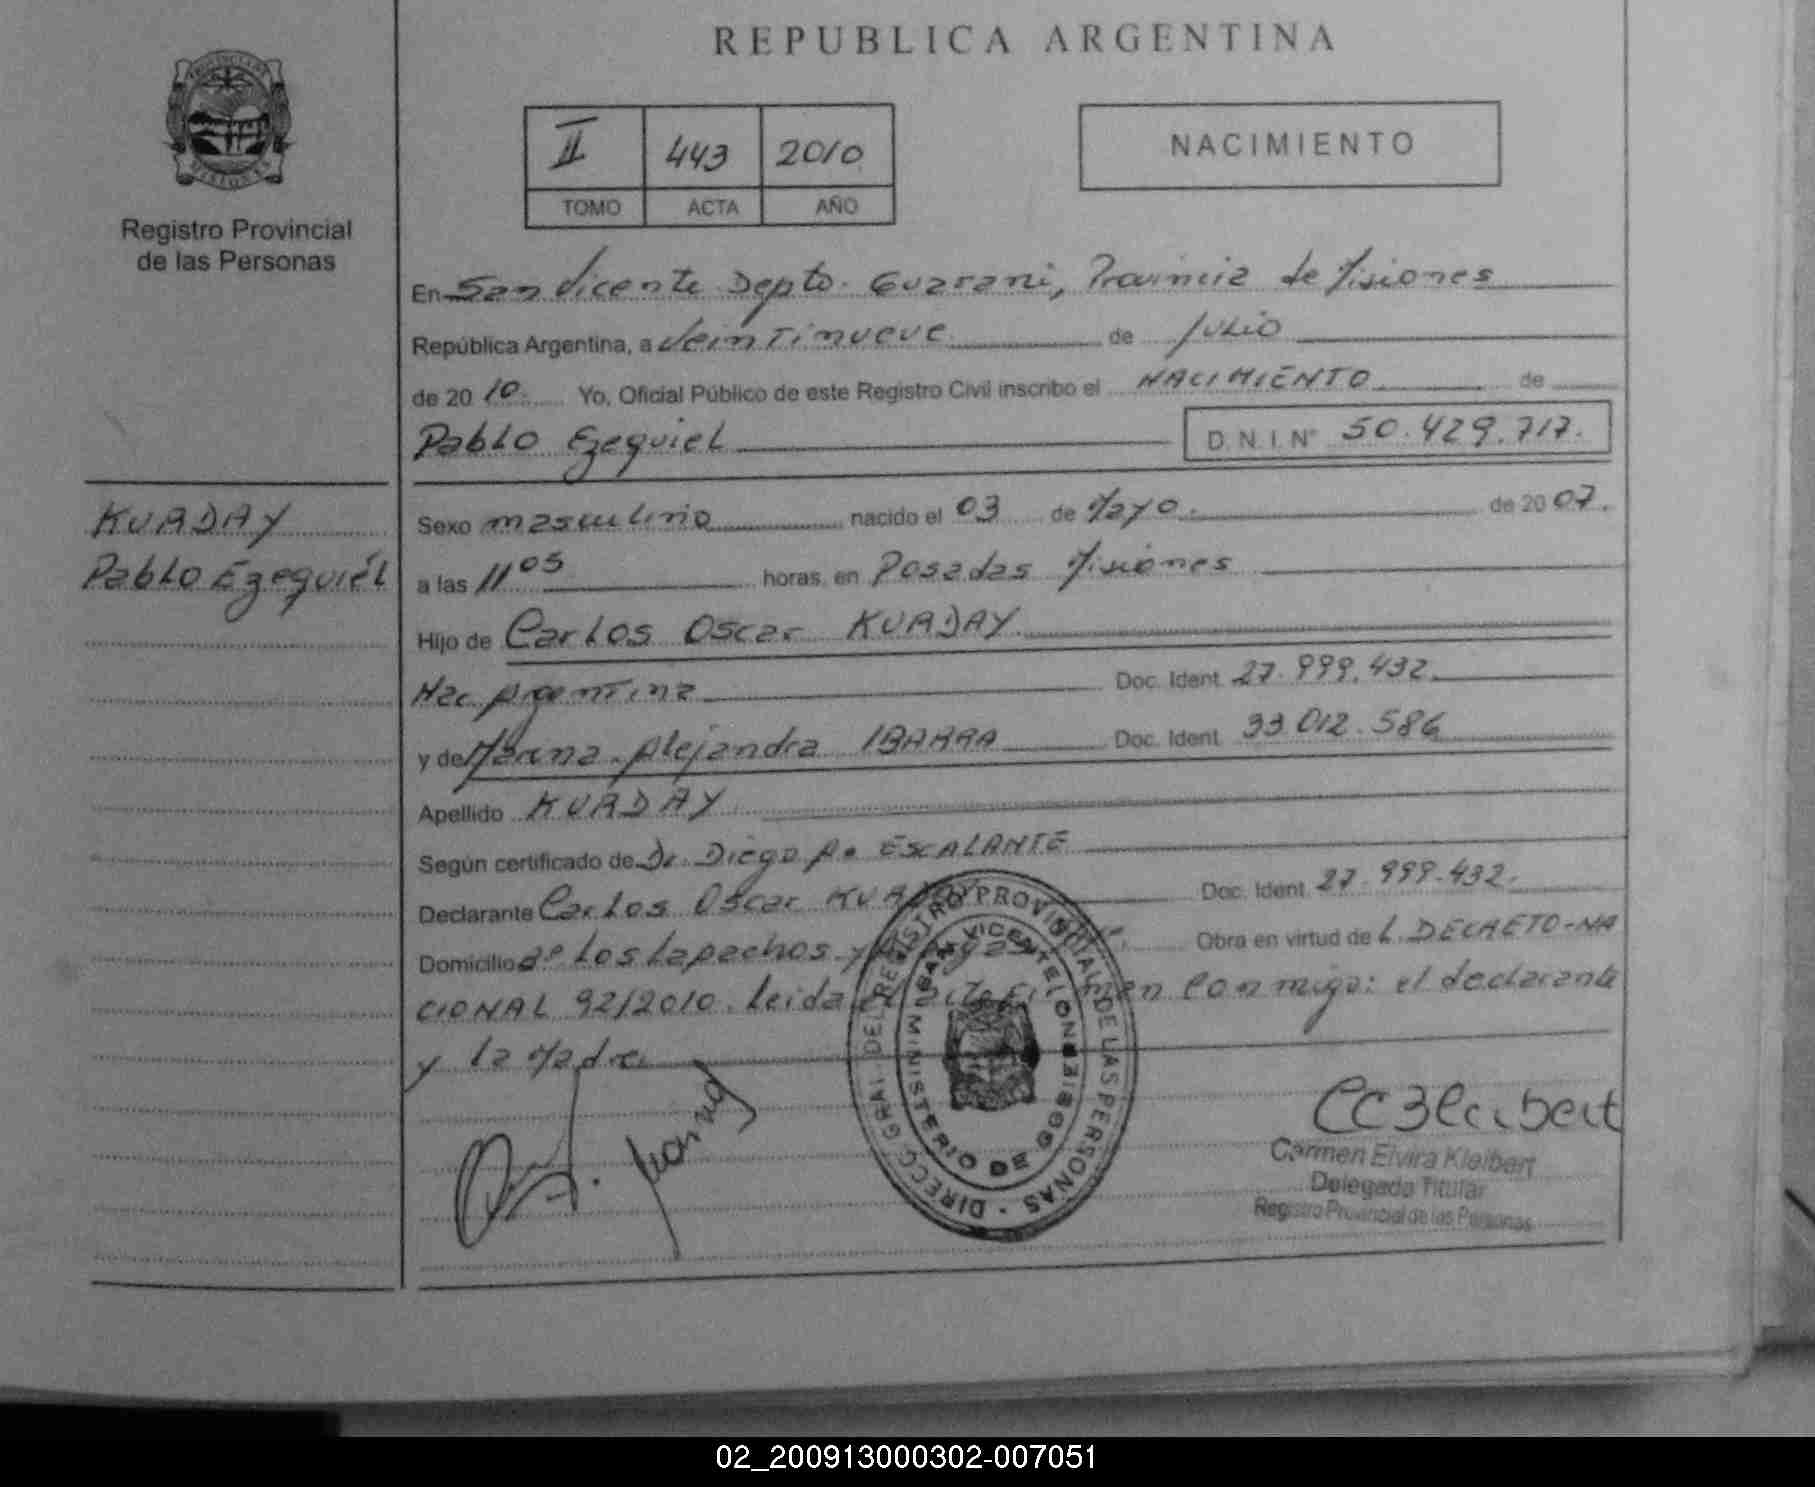 REPUBLICA ARGENTINA
PROVINCIA DE
MISIONES
Registro Provincial
de las Personas
II 443 2010
TOMO ACTA AÑO
NACIMIENTO
En San Vicente Depto. Guarani, Provincia de Misiones
República Argentina, a Veintinueve de Julio
de 2010. Yo, Oficial Público de este Registro Civil inscribo el NACIMIENTO de
Pablo Ezequiel D.N.I. N° 50.429.717.
KURDAY
Pablo Ezequiel
Sexo masculino nacido el 03 de Mayo. de 2007.
a las 11 05 horas, en Posadas Misiones
Hijo de Carlos Oscar KURDAY.
Nac. Argentina Doc. Ident. 27.999.432.
y de Alejandra IBARRA Doc. Ident. 33.012.586
Apellido KURDAY
Según certificado de Dr. Diego A. ESCALANTE
Declarante Carlos Oscar KURDAY Doc. Ident. 27.999.432.
Domicilio Bº Los Lapachos y Obra en virtud de L. DECRETO-NA
CIONAL 92/2010. Leida el acta firman conmigo: el declarante
y la Madre.
DIRECC. GRAL. DEL REGISTRO PROVINCIAL DE LAS PERSONAS -
MINISTERIO DE GOBIERNO
SAN VICENTE
Carmen Elvira Kleibert
Delegada Titular
Registro Provincial de las Personas
02_200913000302-007051